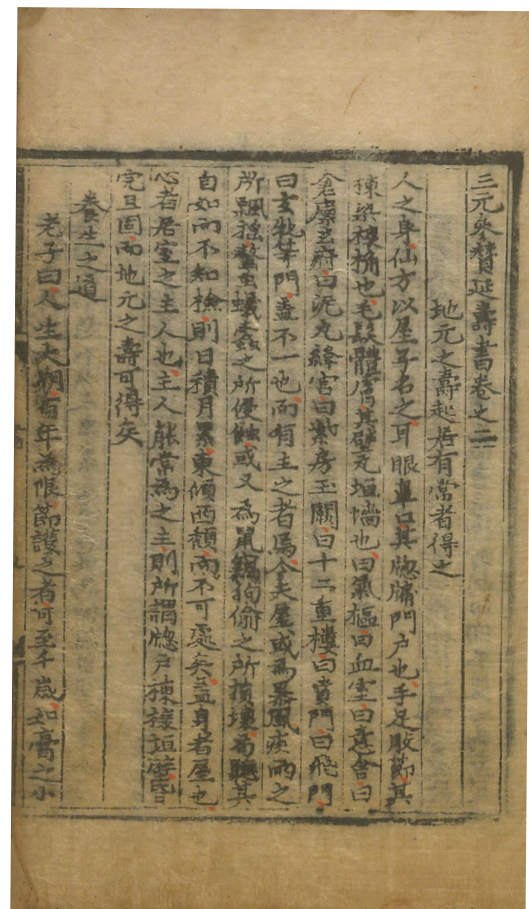 三元叅賛延壽書卷之二
地元之壽起居有常者得之
人之身仙方以屋子名之耳眼鼻口其牕牖門户也手足肢節其
棟梁榱桷也毛髮體膚其壁瓦垣墻也曰氣樞曰血室曰意舍曰
倉廩玄府曰泥丸絳宮曰紫房玉闕曰十二重樓曰賁門曰飛門
曰玄牝等門盖不一也而有主之者焉今夫屋或爲暴風疾雨之
所飄揺螱虫蟻蠧之所侵蝕或又為鼠竊狗偷之所損壊苟聴其
自如而不知檢則日積月累東傾西頽而不可處矣盖身者屋也
心者居室之主人也主人能常為之主則所謂牕户棟樑垣壁皆
完且固而地元之壽可得矣
養生之道
老子曰人生大期百年為限節護之者可至千歲如膏之小